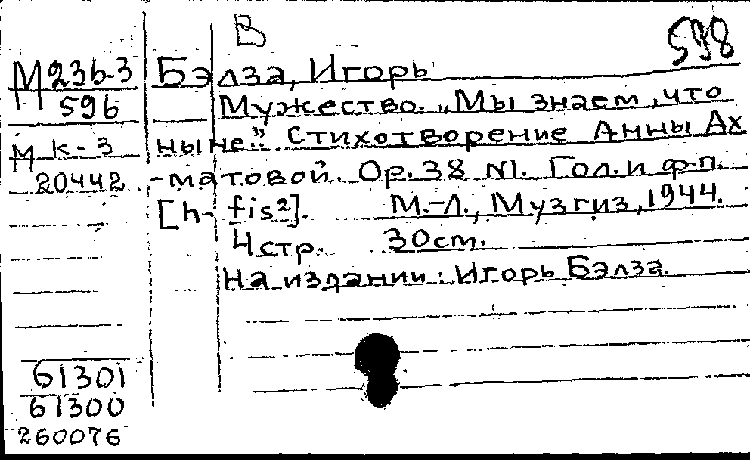 В
598
М 236-3
596
Бэлза, Игорь
Мужество. „Мы знаем, что
М К-3
20442
ныне". Стихотворение Анны Ах
-матовой. Ор. 38 N1. Гол. и ф-п.
[h-fis²]. М.-Л., Музгиз, 1944.
4стр. 30см.
На издании: Игорь Бэлза.
61301
61300
260076